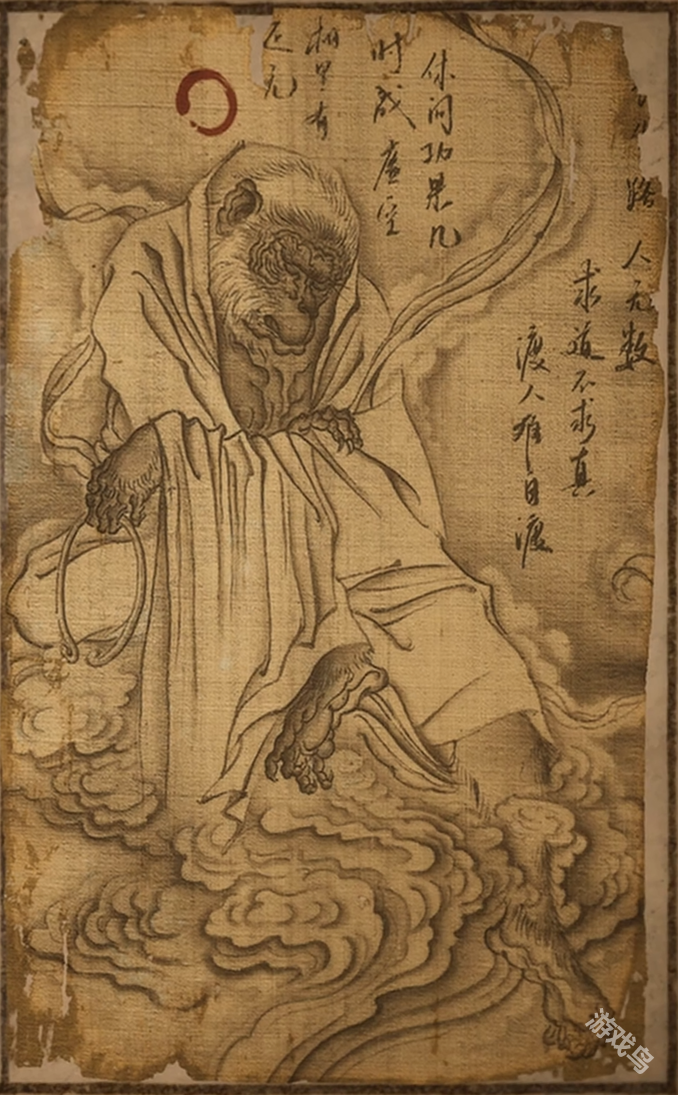 路人无数
求道不求真
渡人难自渡
休问功果几
时成虚空
相里有
还无
游戏鸟